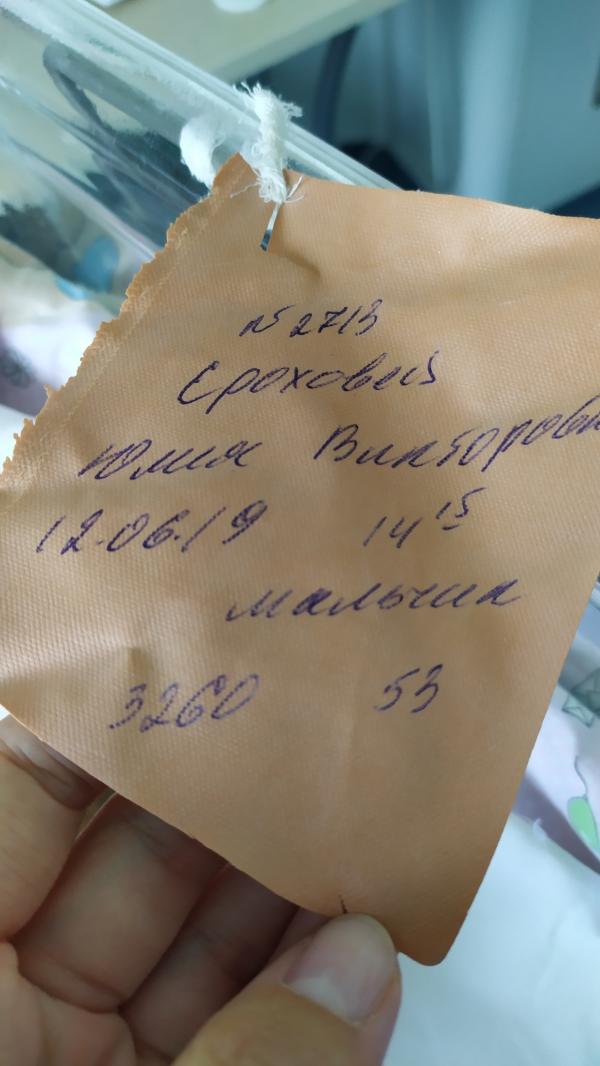 № 2713
Ероховец
Юлия Викторовн
12.06.19 14 15
мальчик
3260 53